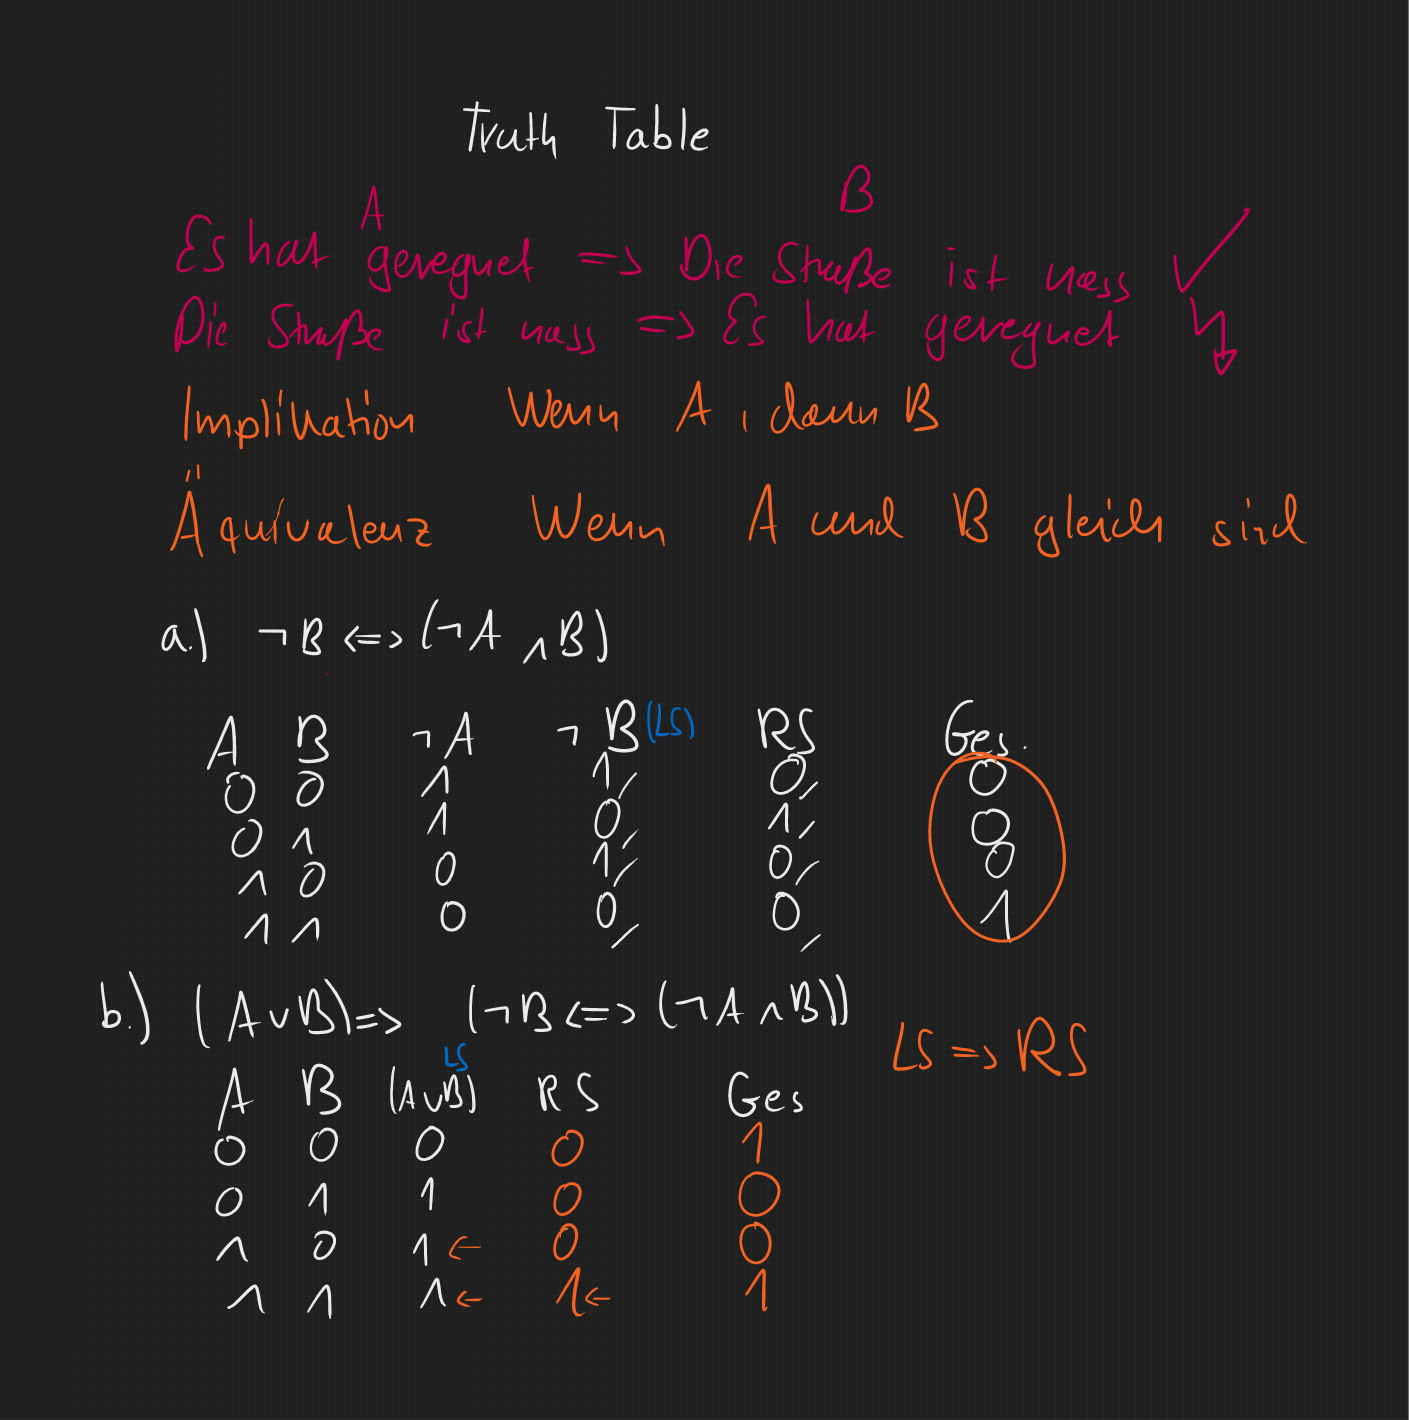 Truth Table
A B
Es hat geregnet => Die Straße ist nass ✓
Die Straße ist nass => Es hat geregnet ↯
Implikation Wenn A, dann B
Äquivalenz Wenn A und B gleich sind
a.) ¬B <=> (¬A ∧ B)
A B ¬A ¬B (LS) RS Ges.
0 0 1 1 0 0
0 1 1 0 1 0
1 0 0 1 0 0
1 1 0 0 0 1
b.) (A ∨ B) => (¬B <=> (¬A ∧ B))
LS => RS
LS
A B (A ∨ B) RS Ges
0 0 0 0 1
0 1 1 0 0
1 0 1 ← 0 0
1 1 1 ← 1 ← 1